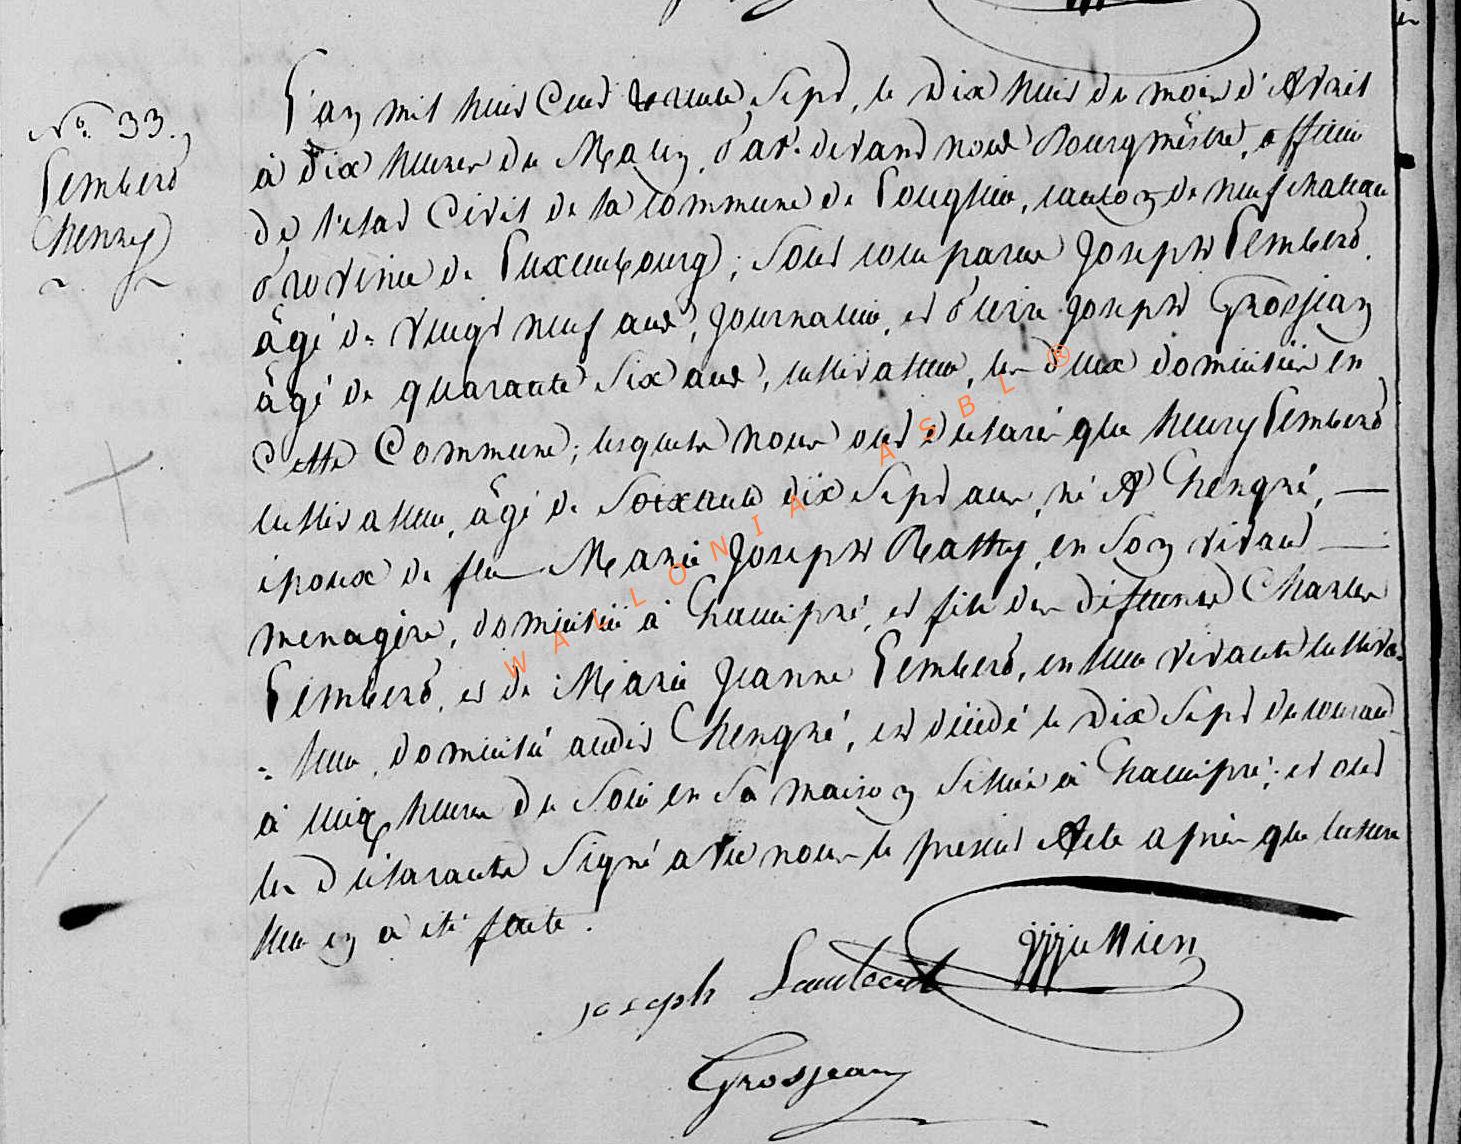 N° 33.
Lembert
Henry
L'an mil huit cent trente sept, le dix huit du mois d'Avril
à dix heures du Matin, Par devant nous Bourgmêstre, officier
de l'etat Civil de la commune de Longlier, canton de neufchateau
province de Luxembourg, sont comparus Joseph Lembert,
âgé de vingt neuf ans, journalier, et Pierre Joseph Grosjean
âgé de quarante six ans, cultivateur, les deux domiciliés en
cette Commune; lesquels nous ont déclaré que henry Lembert
cultivateur, âgé de soixante dix sept ans, né A
époux de feu Marie Joseph en son vivant
menagère, domicilié à et fils des défunts Charles
Lembert, et de Marie Jeanne Lembert, en leur vivants cultiva-
= teur, domicilié audit est décédé le dix sept du courant
à cinq heures du soir en sa maison située à et ont
les déclarants signé avec nous le présent Acte après que lecture
leur en a été faite.
joseph Lambert
Grosjean
WALLONIA ASBL ®